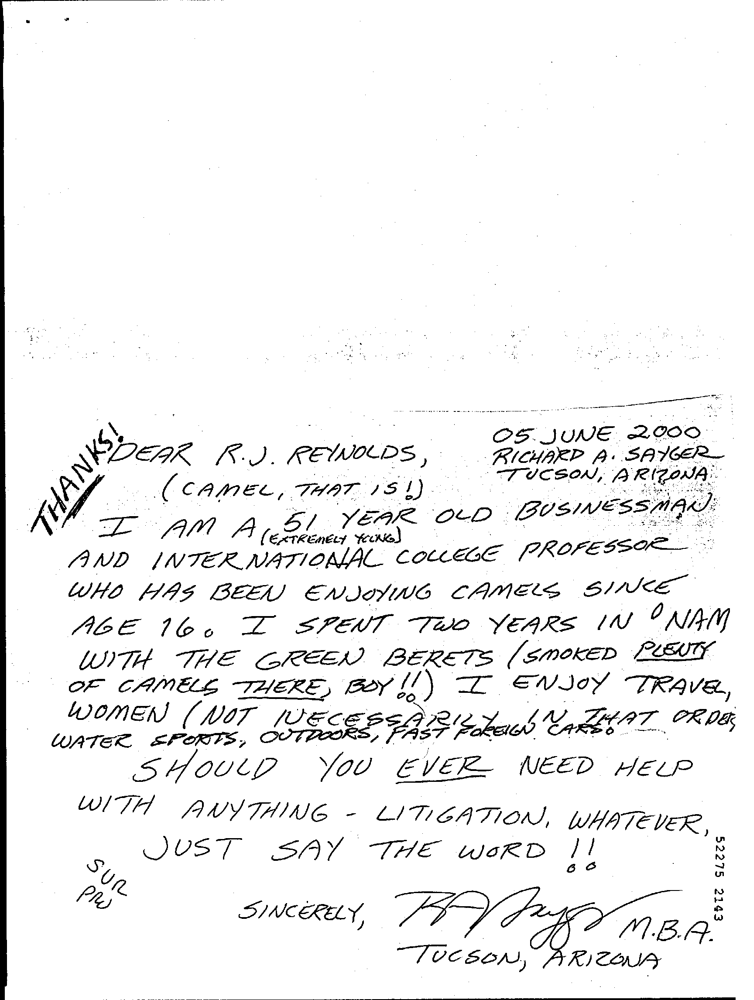 THANKS!
05 JUNE 2000
DEAR R.J. REYNOLDS,
RICHARD A. SAYGER
TUCSON, ARIZONA
(CAMEL, THAT IS!)
I AM A 51 YEAR OLD BUSINESSMAN
(EXTREMELY YOUNG)
AND INTERNATIONAL COLLEGE PROFESSOR
WHO HAS BEEN ENJOYING CAMELS SINCE
AGE 16. I SPENT TWO YEARS IN 'NAM
WITH THE GREEN BERETS (SMOKED PLENTY
OF CAMELS THERE, BOY!!) I ENJOY TRAVEL,
WOMEN (NOT NECESSARILY IN THAT ORDER
WATER SPORTS, OUTDOORS, FAST FOREIGN CARS.
SHOULD YOU EVER NEED HELP
WITH ANYTHING - LITIGATION, WHATEVER,
JUST SAY THE WORD!!
SUR
SINCERELY, RA Sayger M.B.A.
TUCSON, ARIZONA
52275 2143